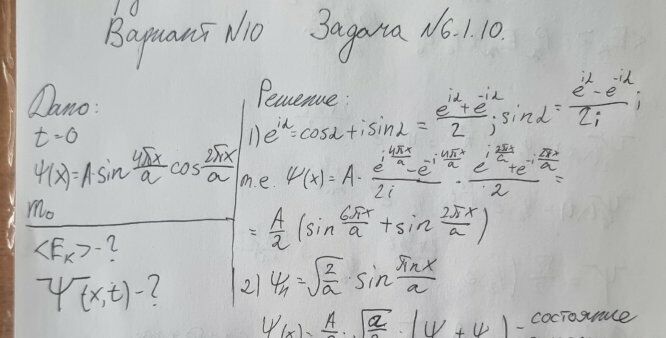 Вариант N10 Задача N6.1.10.
Дано:
t=0
Ψ(x)=A·sin 4πx/a cos 2πx/a
m₀
<Eₖ>-?
Ψ(x,t)-?
Решение:
1) e^{iα}=cosα+isinα = (e^{iα}+e^{-iα})/2 ; sinα = (e^{iα}-e^{-iα})/2i ;
т.е. Ψ(x)=A· (e^{i4πx/a}-e^{-i4πx/a})/2i · (e^{i2πx/a}+e^{-i2πx/a})/2 =
= A/2 (sin 6πx/a + sin 2πx/a)
2) Ψₙ=√(2/a)·sin πnx/a
Ψ(x)= A/2 · √(a/2) · (Ψ + Ψ) - состояние